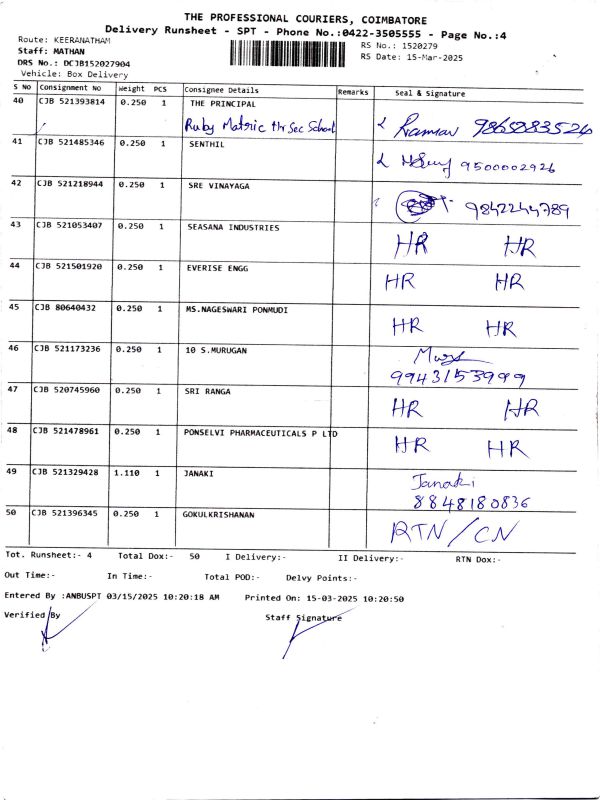 THE PROFESSIONAL COURIERS, COIMBATORE
Delivery Runsheet - SPT - Phone No.:0422-3505555 - Page No.:4
Route: KEERANATHAM
Staff: MATHAN
DRS No.: DCJB152027904
Vehicle: Box Delivery
RS No.: 1520279
RS Date: 15-Mar-2025
S No Consignment No Weight PCS Consignee Details Remarks Seal & Signature
40 CJB 521393814 0.250 1 THE PRINCIPAL
Ruby Matric Hr Sec School Raman 9865883526
41 CJB 521485346 0.250 1 SENTHIL
9500002926
42 CJB 521218944 0.250 1 SRE VINAYAGA
9842244789
43 CJB 521053407 0.250 1 SEASANA INDUSTRIES
HR HR
44 CJB 521501920 0.250 1 EVERISE ENGG
HR HR
45 CJB 80640432 0.250 1 MS.NAGESWARI PONMUDI
HR HR
46 CJB 521173236 0.250 1 10 S.MURUGAN
9943153999
47 CJB 520745960 0.250 1 SRI RANGA
HR HR
48 CJB 521478961 0.250 1 PONSELVI PHARMACEUTICALS P LTD
HR HR
49 CJB 521329428 1.110 1 JANAKI Janaki
8848180836
50 CJB 521396345 0.250 1 GOKULKRISHANAN
RTN/CN
Tot. Runsheet:- 4 Total Dox:- 50 I Delivery:- II Delivery:- RTN Dox:-
Out Time:- In Time:- Total POD:- Delvy Points:-
Entered By :ANBUSPT 03/15/2025 10:20:18 AM Printed On: 15-03-2025 10:20:50
Verified By Staff Signature